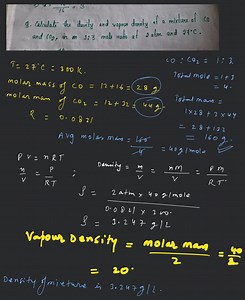 8. Calculate the density and vapour density of a mixture of CO
and CO2, in an 1:3 mole ratio at 2 atm and 27°C.
CO : CO2 = 1:3
T = 27°C = 300K.
Total mole = 1+3
= 4.
molar mass of CO = 12+16 = 28 g
molar mass of CO2 = 12+32 = 44 g
Total mass =
1×28 + 3×44
R = 0.0821
= 28 + 132
= 160 g
Avg molar mass = 160/4 = 40 g/mole
PV = nRT
n/V = P/RT ; Density = m/V = nM/V = PM/RT
ρ = 2 atm × 40 g/mole / 0.0821 × 300
ρ = 3.247 g/L
Vapour Density = molar mass/2 = 40/2
= 20.
Density of mixture is 3.247 g/L.